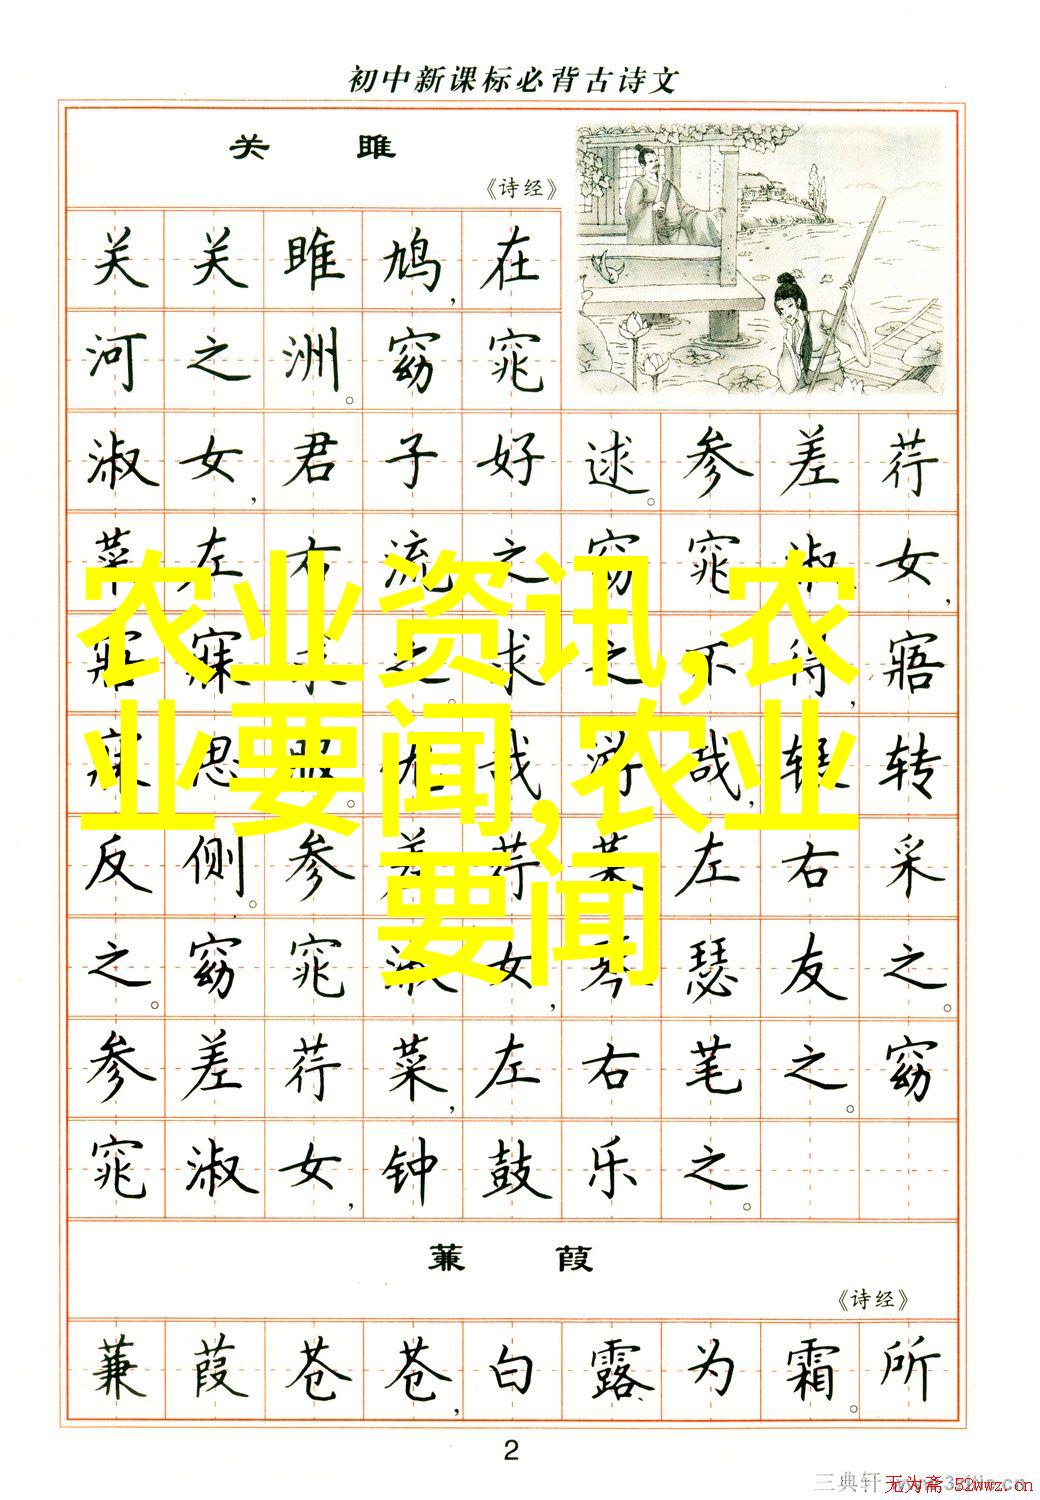 初中新课标必背古诗文
关 雎
《诗经》
关关雎鸠,在
河之洲。窈窕
淑女,君子好逑。参差荇
菜左右流之窈窕淑女,
寤寐求之。求之不得,寤
寐思服。优哉游哉,辗转
反侧。参差荇菜左右采
之。窈窕淑女,琴瑟友之。
参差荇菜,左右芼之。窈
窕淑女,钟鼓乐之。
蒹 葭
《诗经》
蒹葭苍苍,白露为霜。所
2
农业资讯,农
业要闻,农业
要闻
三典轩
无为斋 52wwz.cn